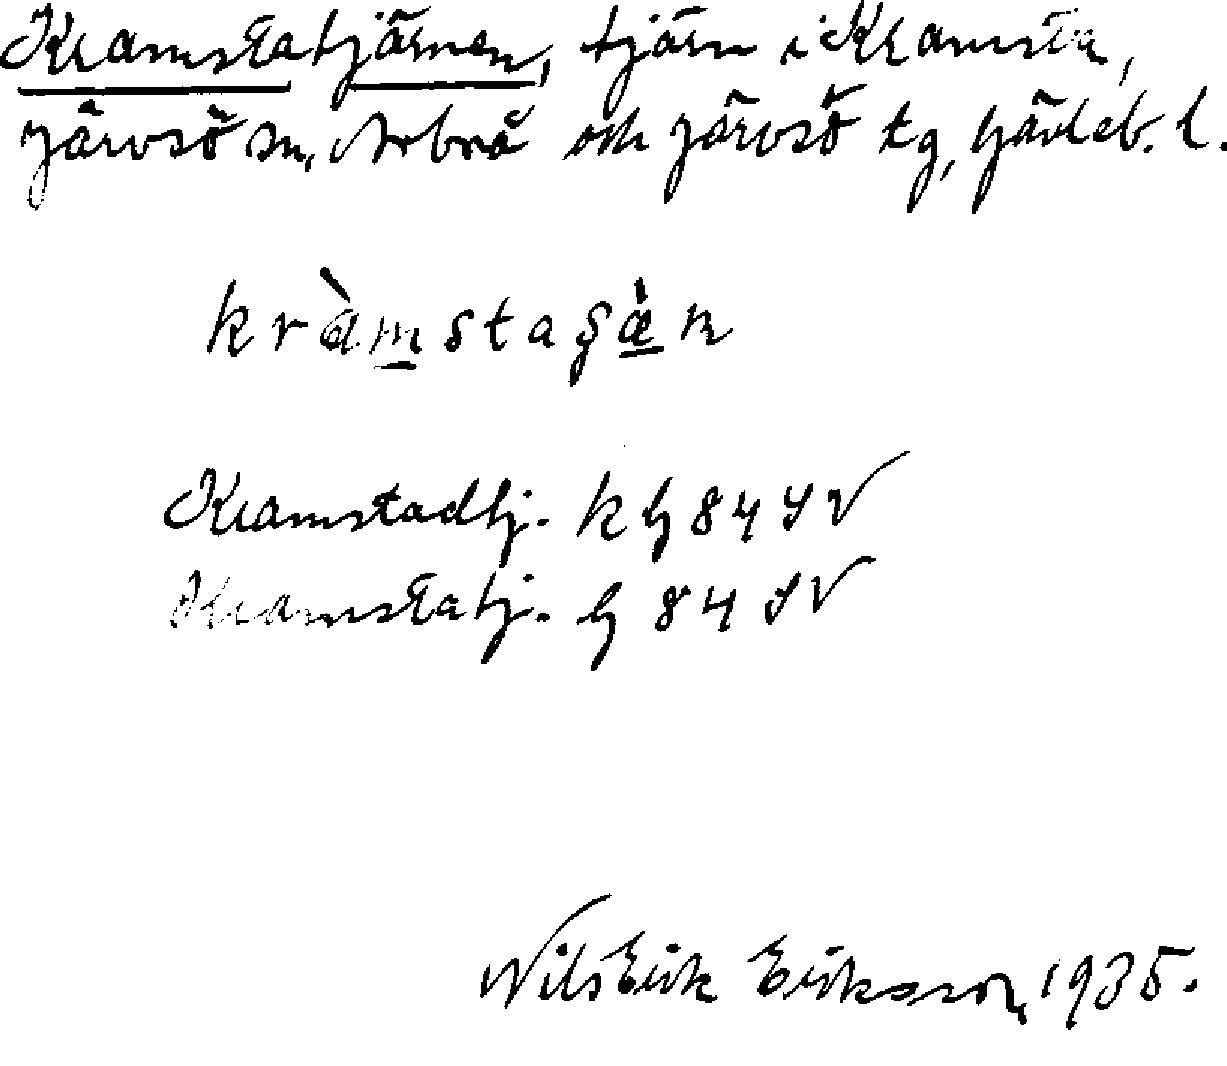 Kramstatjärnen, tjärn i Kramsta,
Järvsö sn, Arbrå och Järvsö tg, Gävleb. l.
kràmstaʂæ̀n
Kramstadtj. k G 84 SV
Kramstatj. G 84 SV
Nils Erik Eriksson, 1935.